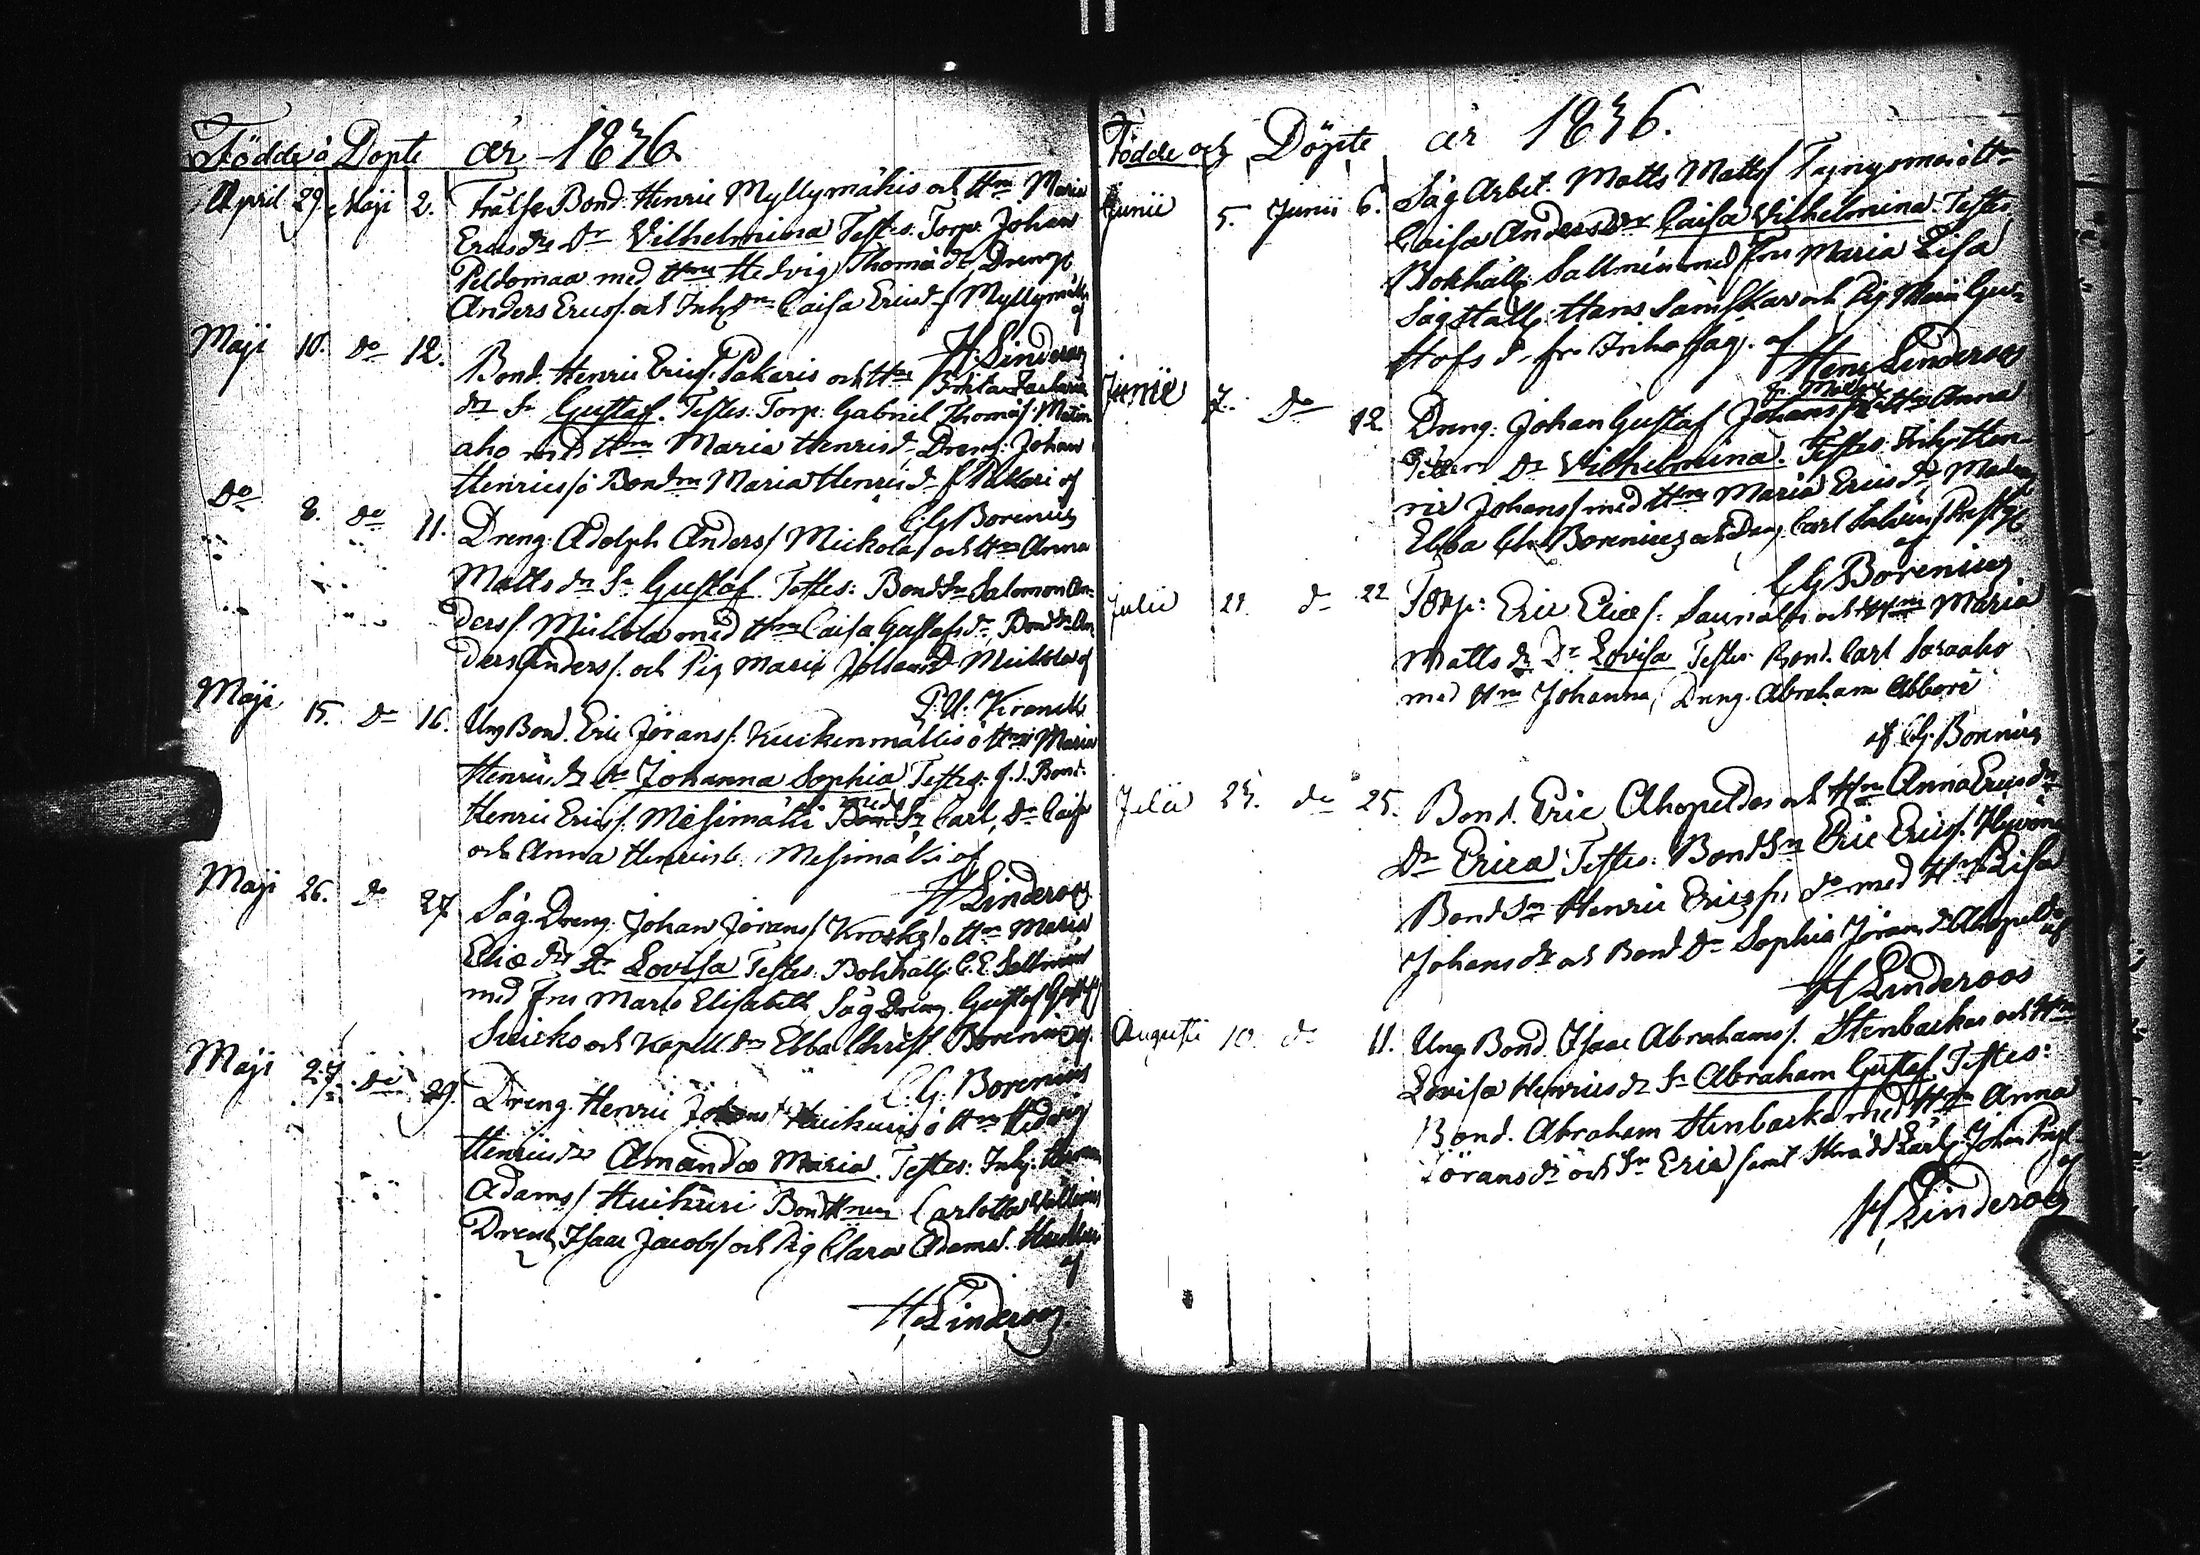 Födde ò Döpte år 1836.
April 29. Maji 2. Frälse Bond. Henric Myllymäkis och Hm Maria
Ericsdr Dr Vilhelmina Testes. Torp. Johan
Peldomaa med Hm Hedvig Thomæ dr Dreng
Anders Ericss. och Inh. dm Caisa Ericd. f Myllymäki
af
H. Linderoos
Maji 10. do 12. Bond. Henric Ericss. Pakaris och Hm Brita Zachariæ
dr Sn Gustaf. Testes: Torp: Gabriel Thomæs.
aho med Hm Maria Henricsd. Dreng: Johan
Henricss ò Bondm Maria Henricsd. f Pakari af
C.G. Borenius
do 8. do 11. Dreng. Adolph Anderss Mickola och Hm Anna
Matts dr Sn Gustaf. Testes: Bond Sn Salomon An-
derss. Mickola med Hm Caisa Gustafsdr. Bond Sn An-
ders Anderss. och Pig. Maria Johansd. Mickola af
Maji 15. do 16. Ung Bond. Eric Jöranss. Kuckenmäkis ò Hm Maria
Henrics dr Dr Johanna Sophia Testes: f.d. Bond.
Henric Ericss. Mesimäki med Sn Carl, Dr Caisa
och Anna Henricsd. Mesimäki af
H Linderoos
Maji 26. do 27. Såg. Dreng. Johan Jöranss ò Hm Maria
Eliæ dr Dr Lovisa Testes. Bokhåll: C.E. Sallmén
med Fru Maria Elisabeth, Såg Dreng. Gustaf
och Kapell. dr Ebba Christ. Borenius af
C.G. Borenius
Maji 27. do 29. Dreng Henric Huikuris ò Hm Hedvig
Henrics dr Amanda Maria. Testes: Inh:
Adamss Huikuri Bond Hm Carlotta
Dreng Isaac Jacobss och Pig Clara Adamsd.
af
H Linderoos
Födde och Döpte år 1836.
Junii 5. Junii 6. Såg Arbet. Matts Mattss ò Hm
Caisa Andersdr Dr Caisa Vilhelmina. Testes
Bokhåll: Sallmén med Fru Maria Lisa
Sågställ: Hans och Pig. Maria Gus-
tafs d. af
Henr Linderoos
Junii 7. do 12 Dreng. Johan Gustaf Johanss och Hm Anna
Dr Vilhelmina. Testes. Inh: Hen-
ric Johanss med Hm Maria Erics dr
Ebba Chr. Borenius och Dreng Carl
af
C G Borenius
Julii 21. do 22 Torp: Eric Eliæs. och Hm Maria
Matts dr Dr Lovisa Testes Bond. Carl Saraaho
med Hm Johanna, Dreng. Abraham Abboré
af C.G. Borenius
Julii 23. do 25. Bond. Eric Ahopeldos och Hm Anna Ericsdr
Dr Erica Testes: Bond Sn Eric Ericss.
Bond Sn Henric Ericss. do med Hm Lisa
Johans dr och Bond Dr Sophia Jörans d. Ahopeldo
af
H Linderoos
Augusti 10. do 11. Ung Bond Isaac Abrahamss. Stenbackas och Hm
Lovisa Henrics dr Sn Abraham Gustaf Testes:
Bond. Abraham Stenbacka med Hm Anna
Jörans dr och Sn Eric samt Johan
af
H Linderoos